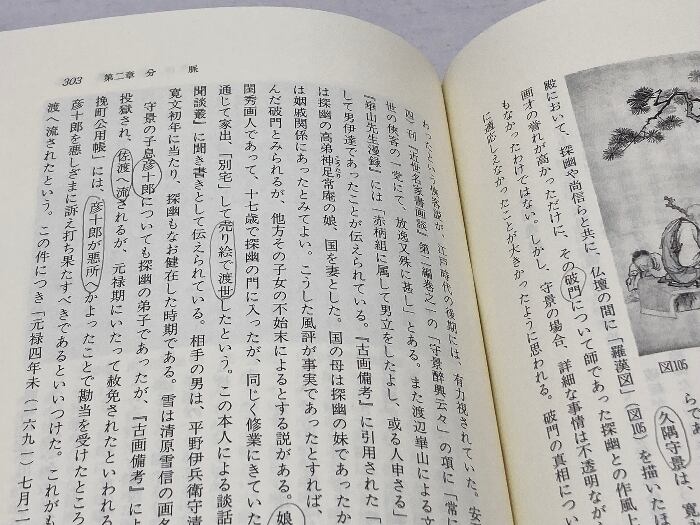 図105
らあ
久隅守景は、寛
殿において、探幽や尚信らと共に、仏壇の間に「羅漢図」(図105)を描いたほ
画才の誉れが高かっただけに、その破門について師であった探幽との作風、
もなかったわけではない。しかし、守景の場合、詳細な事情は不透明なが
に適応しえなかったことが大きかったように思われる。破門の真相につい
303 第二章 分脈
わったという俠客説が、江戸時代の後期には、有力視されていた。安
四)刊『近世名家書画談』第二編巻之一の「守景酔興云々」の項に「常に
世の俠客の一党にて、放逸又殊に甚し」とある。また渡辺崋山による文
『崋山先生漫録』には「赤柄組に属して男立をしたよし、或る人申さる」
して男伊達であったことが伝えられている。『古画備考』に引用された「
は探幽の高弟神足常庵の娘、国を妻とした。国の母は探幽の妹であったか
は姻戚関係にあったとみてよい。こうした風評が事実であったとすれば、
んだ破門とみられるが、他方その子女の不始末によるとする説がある。娘
閨秀画人であって、十七歳で探幽の門に入ったが、同じく修業にきていた
通じて家出、「別宅」して売り絵で渡世したという。この本人による談話
聞談叢』に聞き書きとして伝えられている。相手の男は、平野伊兵衛守清
寛文初年に当たり、探幽もなお健在した時期である。雪は清原雪信の画名
守景の子息彦十郎についても探幽の弟子であったが、『古画備考』によ
投獄され、佐渡へ流されるが、元禄期にいたって赦免されたといわれる
挽町公用帳」には、彦十郎が悪所へかよったことで勘当を受けたところ
彦十郎を悪しざまに訴え打ち果たすべきであるといいつけた。これがも
渡へ流されたという。この件につき「元禄四年未(一六九一)七月二